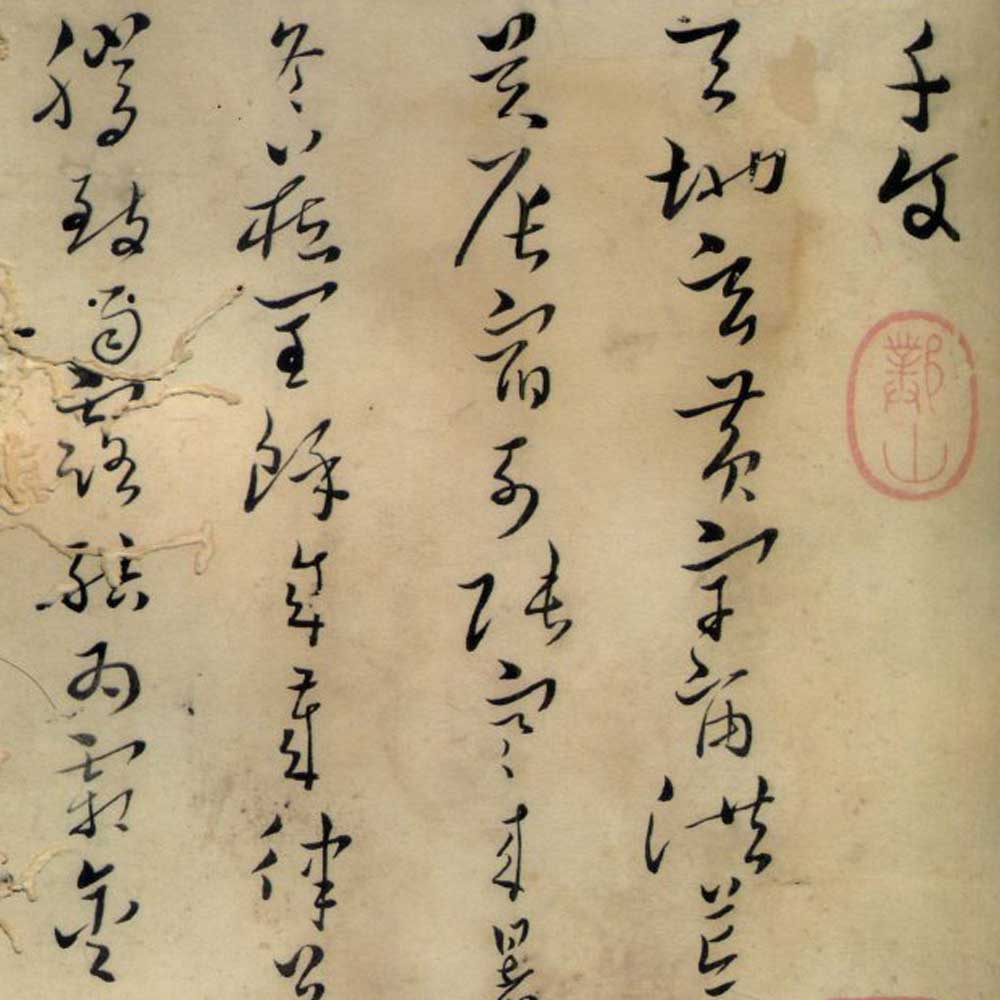 千文
天地玄黄宇宙洪荒
昃辰宿列張寒来暑
冬藏閏餘成歲律呂
騰致雨露結為霜金